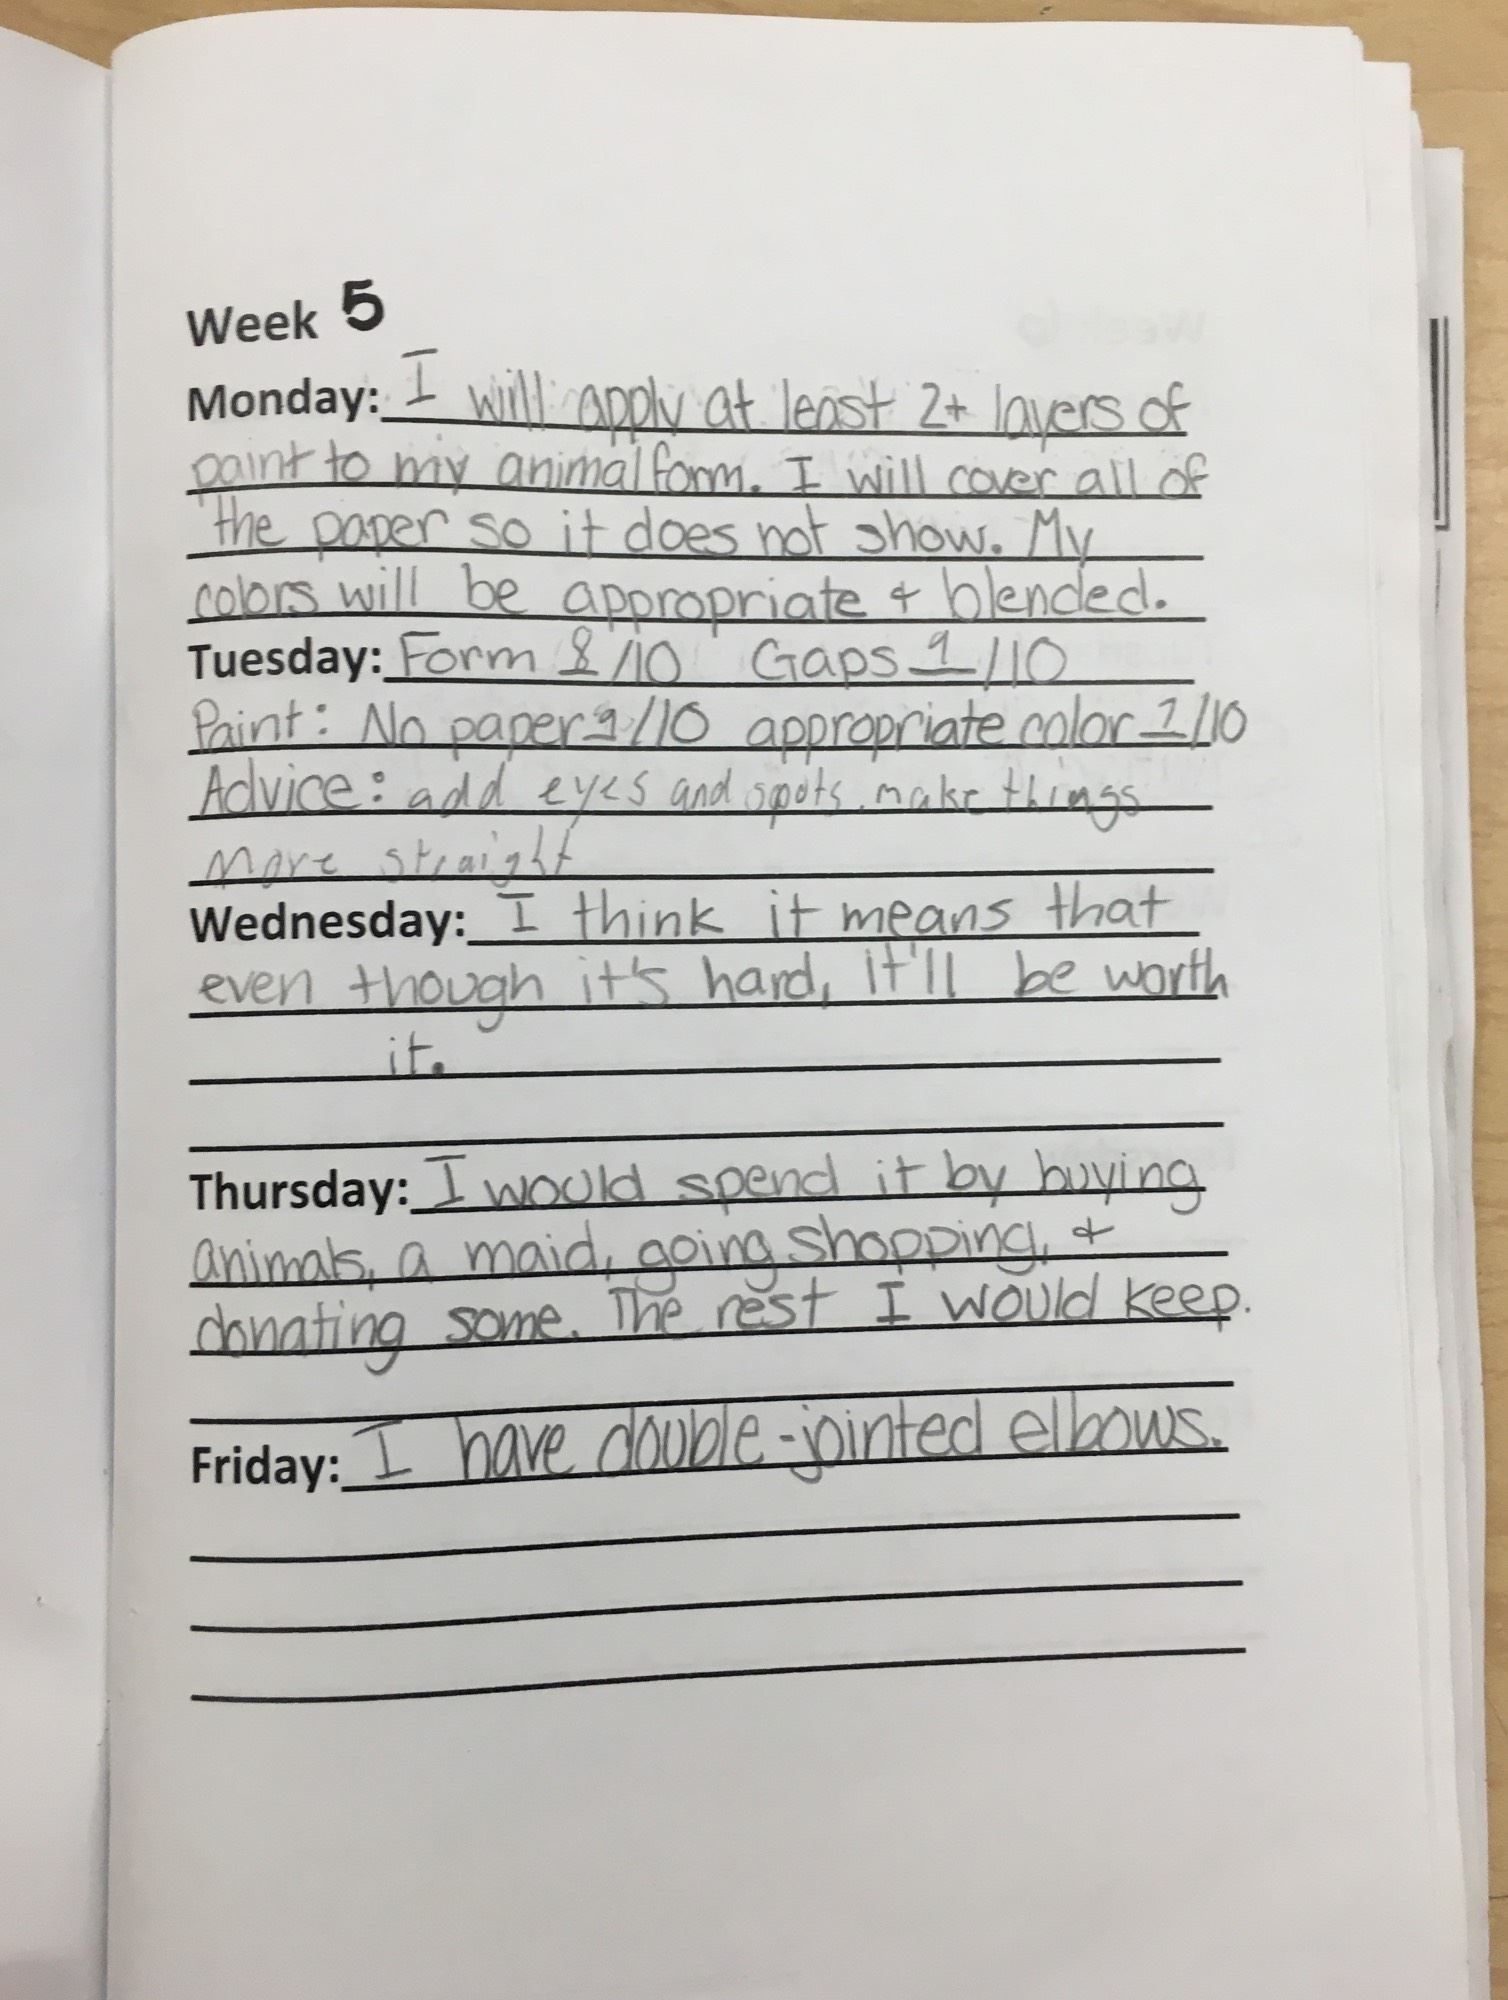 Week 5
Monday: I will apply at least 2+ layers of
paint to my animal form. I will cover all of
the paper so it does not show. My
colors will be appropriate & blended.
Tuesday: Form 8/10 Gaps 9/10
Paint: No paper 9/10 appropriate color /10
Advice: add eyes and spots. make things
more straight
Wednesday: I think it means that
even though it's hard, it'll be worth
it.
Thursday: I would spend it by buying
animals, a maid, going shopping, &
donating some. The rest I would keep.
Friday: I have double-jointed elbows.